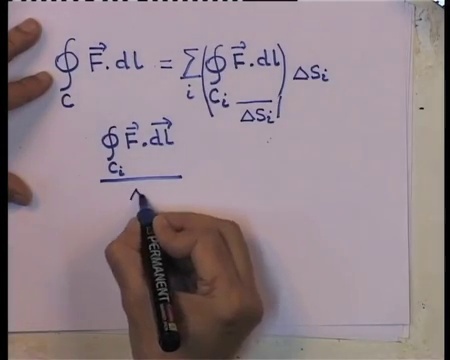 ∮_C F⃗.dl = Σ_i (∮_{C_i} F⃗.dl / ΔS_i) ΔS_i
∮_{C_i} F⃗.dl⃗
PERMANENT